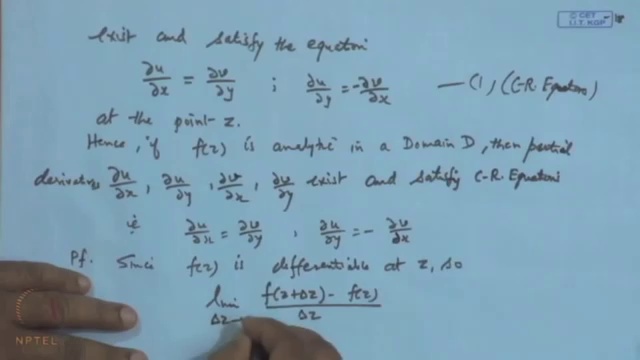 © CET
I.I.T. KGP
exist and satisfy the equation
∂u/∂x = ∂v/∂y ; ∂u/∂y = -∂v/∂x —(1) (C-R. Equations)
at the point z.
Hence, if f(z) is analytic in a Domain D, then partial
derivatives ∂u/∂x, ∂u/∂y, ∂v/∂x, ∂v/∂y exist and satisfy C-R. Equations
ie ∂u/∂x = ∂v/∂y, ∂u/∂y = - ∂v/∂x
Pf. Since f(z) is differentiable at z, so
lim Δz→ (f(z+Δz) - f(z))/Δz
NPTEL